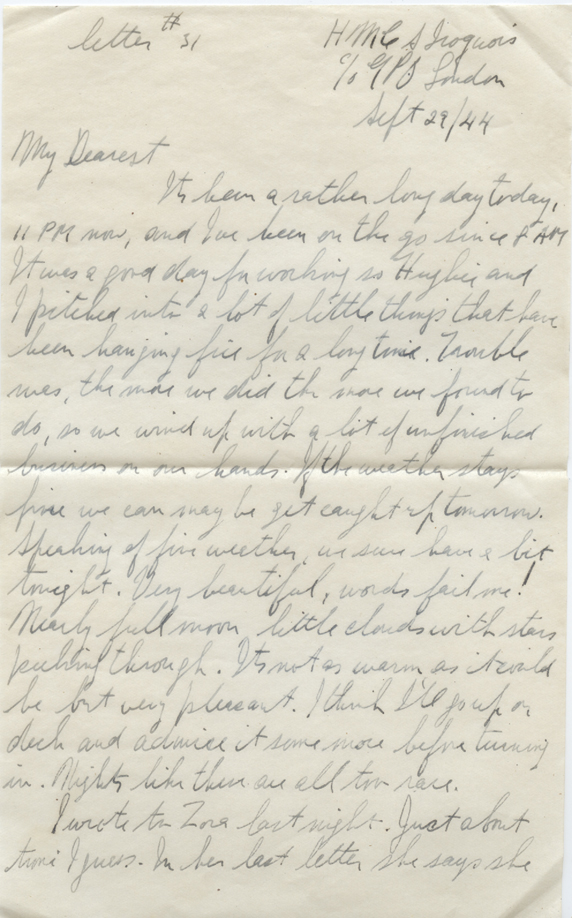 letter # 31
HMCS Iroquois
c/o GPO London
Sept 29/44
My Dearest
Its been a rather long day today,
11 PM now, and I've been on the go since 8 AM
It was a good day for working so Hughie and
I pitched into a lot of little things that have
been hanging fire for a long time. Trouble
was, the more we did the more we found to
do, so we wind up with a lot of unfinished
business on our hands. If the weather stays
fine we can may be get caught up tomorrow.
Speaking of fine weather, we sure have a bit
tonight. Very beautiful, words fail me!
Nearly full moon, little clouds with stars
peeking through. Its not as warm as it could
be but very pleasant. I think I'll go up on
deck and admire it some more before turning
in. Nights like these are all too rare.
I wrote to Zora last night. Just about
time I guess. In her last letter she says she